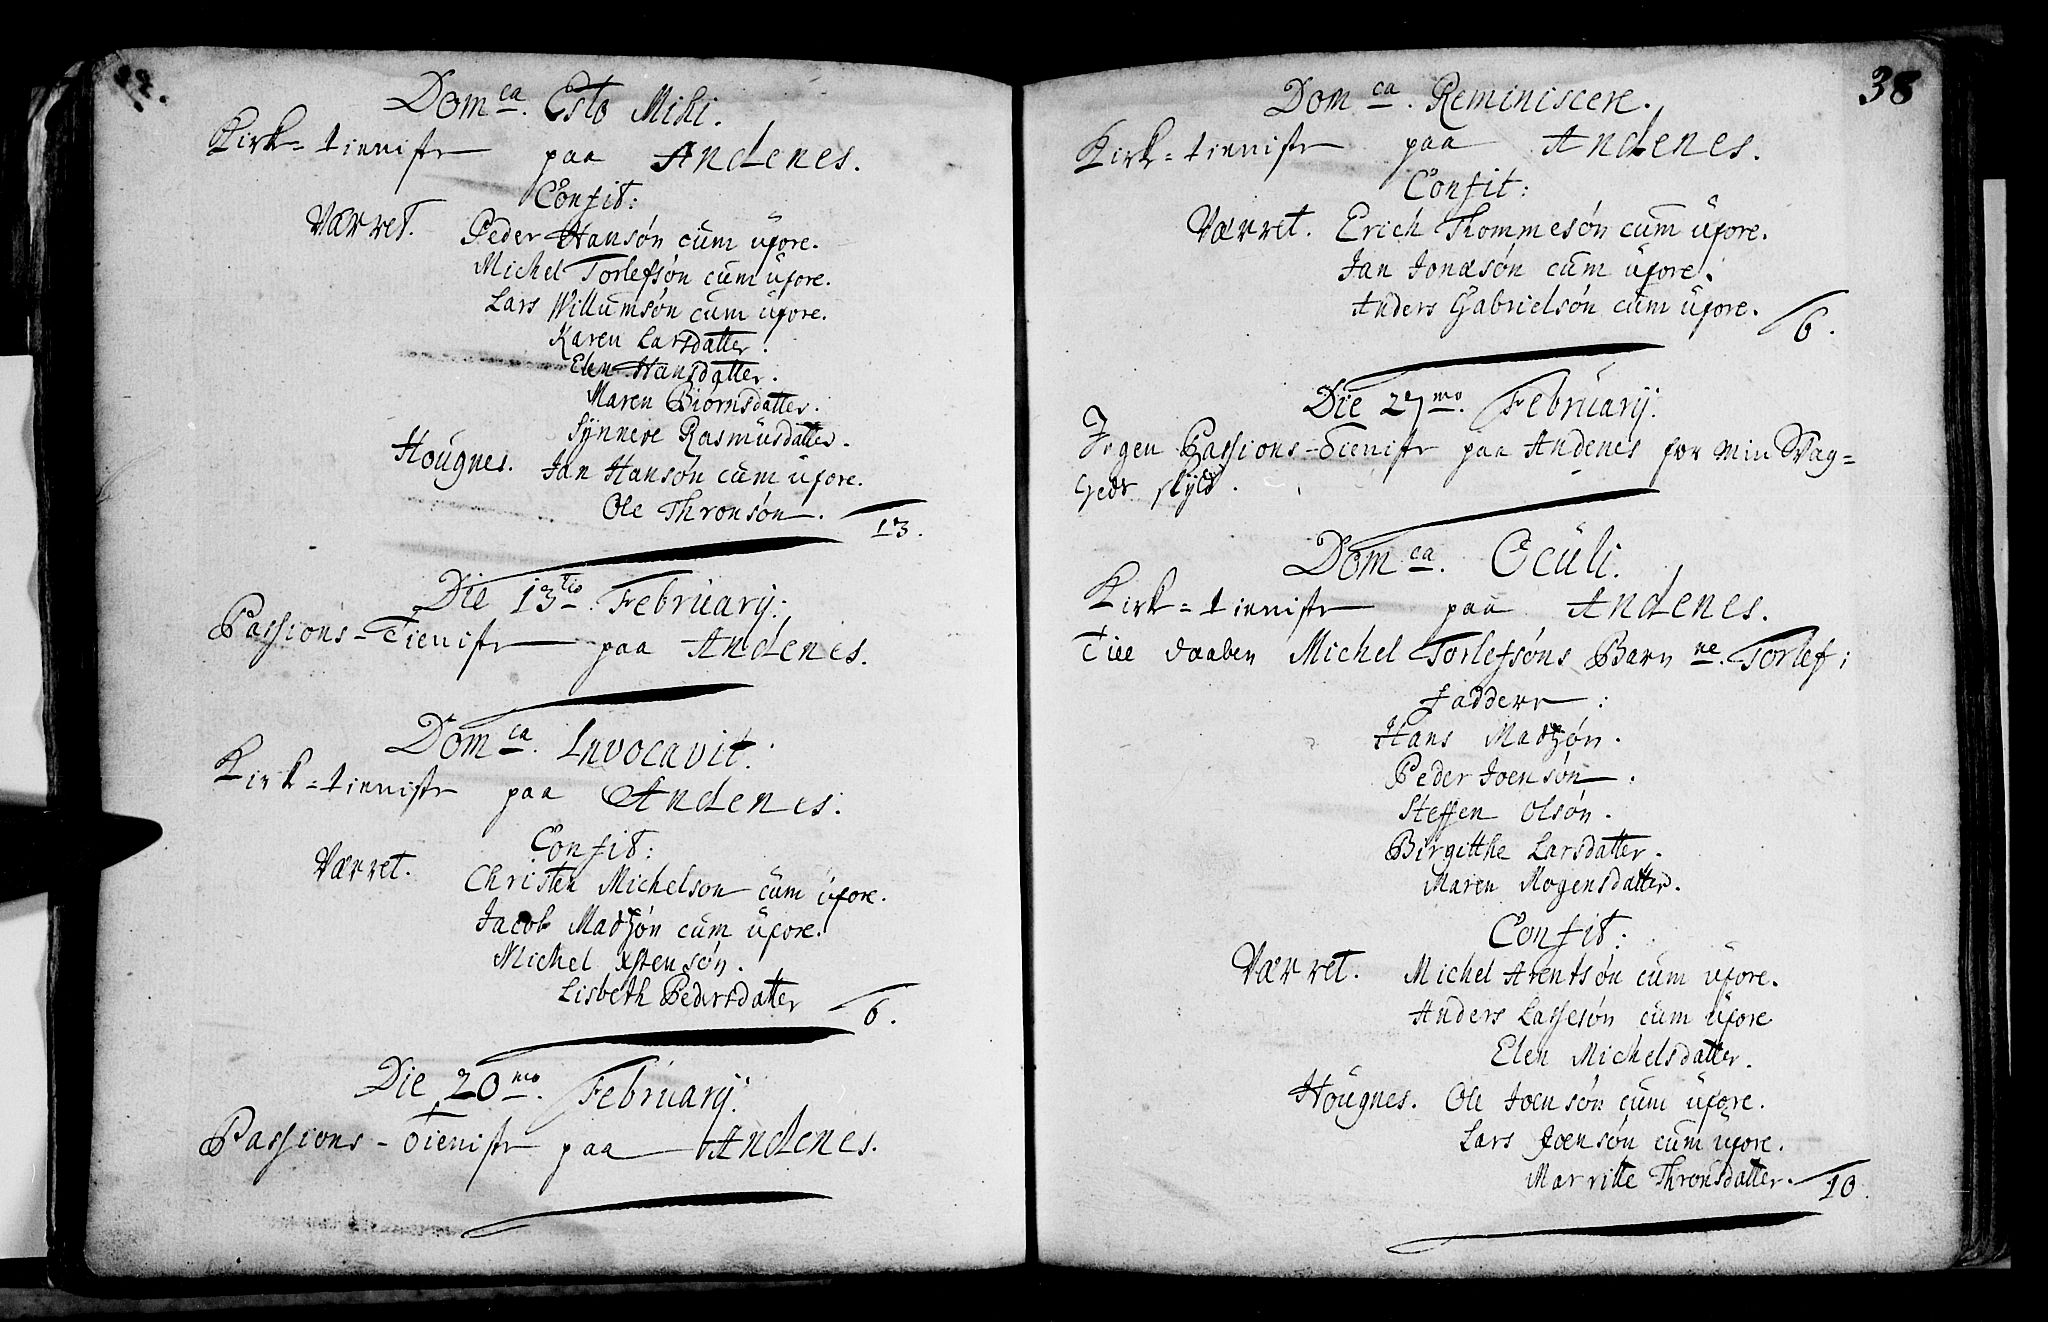 Dom ca. Esto Mihi.
Kirk=tieniste paa Andenes.
Confit:
Værret. Peder Hansøn cum uxore.
Michel Torlefsøn cum uxore.
Lars Willumsøn cum uxore.
Karen Larsdatter.
Elen Hansdatter.
Maren Biørnsdatter.
Synneve Rasmusdatter.
Hougnes. Jan Hansøn cum uxore.
Ole Thronsøn. 13.
Die 13tio. February:
Passions-Tieniste paa Andenes.
Dom ca. Invocavit:
Kirk=tieniste paa Andenes.
Confit:
Værret. Christen Michelsøn cum uxore.
Jacob Madzøn cum uxore.
Michel Ostensøn.
Lisbeth Pedersdatter 6.
Die 20mo. February:
Passions-Tieniste paa Andenes.
38
Dom ca. Reminiscere.
Kirk=tieniste paa Andenes.
Confit:
Værret. Erich Thommesøn cum uxore.
Jan Jonasøn cum uxore.
Anders Gabrielsøn cum uxore. 6.
Die 27mo. February:
Ingen Passions-Tieniste paa Andenes for min Svag=
heds skyld.
Dom ca. Oculi.
Kirk=tieniste paa Andenes.
Till daaben Michel Torlefsøns Barn ne. Torlef:
Faddere:
Hans Madzøn.
Peder Joensøn.
Steffen Olsøn.
Birgitthe Larsdatter.
Maren Mogensdatter.
Confit:
Værret. Michel Arentsøn cum uxore.
Anders Lassesøn cum uxore
Elen Michelsdatter.
Hougnes. Ole Joensøn cum uxore.
Lars Joensøn cum uxore.
Marritte Thronsdatter. 10.